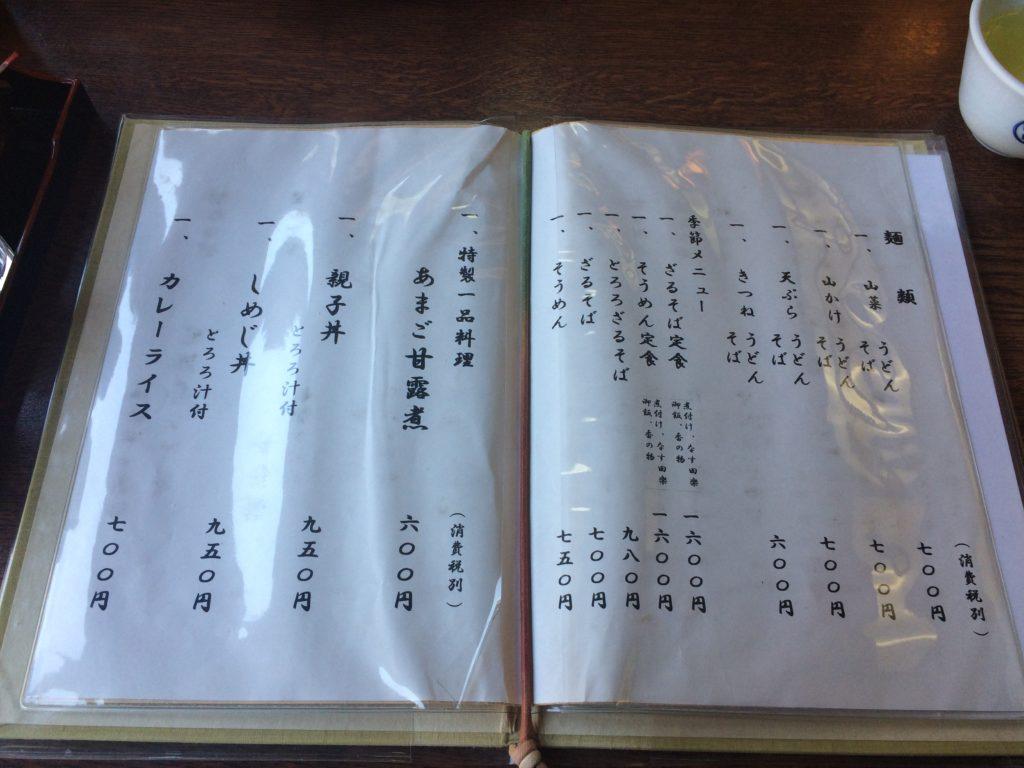 麺類 (消費税別)
一、山菜 うどん
そば 七〇〇円
一、山かけ うどん
そば 七〇〇円
一、天ぷら うどん
そば 七〇〇円
一、きつね うどん
そば 六〇〇円
季節メニュー
一、ざるそば定食 煮付け、なす田楽
御飯、香の物 一六〇〇円
一、そうめん定食 煮付け、なす田楽
御飯、香の物 一六〇〇円
一、とろろざるそば 九八〇円
一、ざるそば 七〇〇円
一、そうめん 七五〇円
一、特製一品料理 (消費税別)
あまご甘露煮 六〇〇円
一、親子丼
とろろ汁付 九五〇円
一、しめじ丼
とろろ汁付 九五〇円
一、カレーライス 七〇〇円